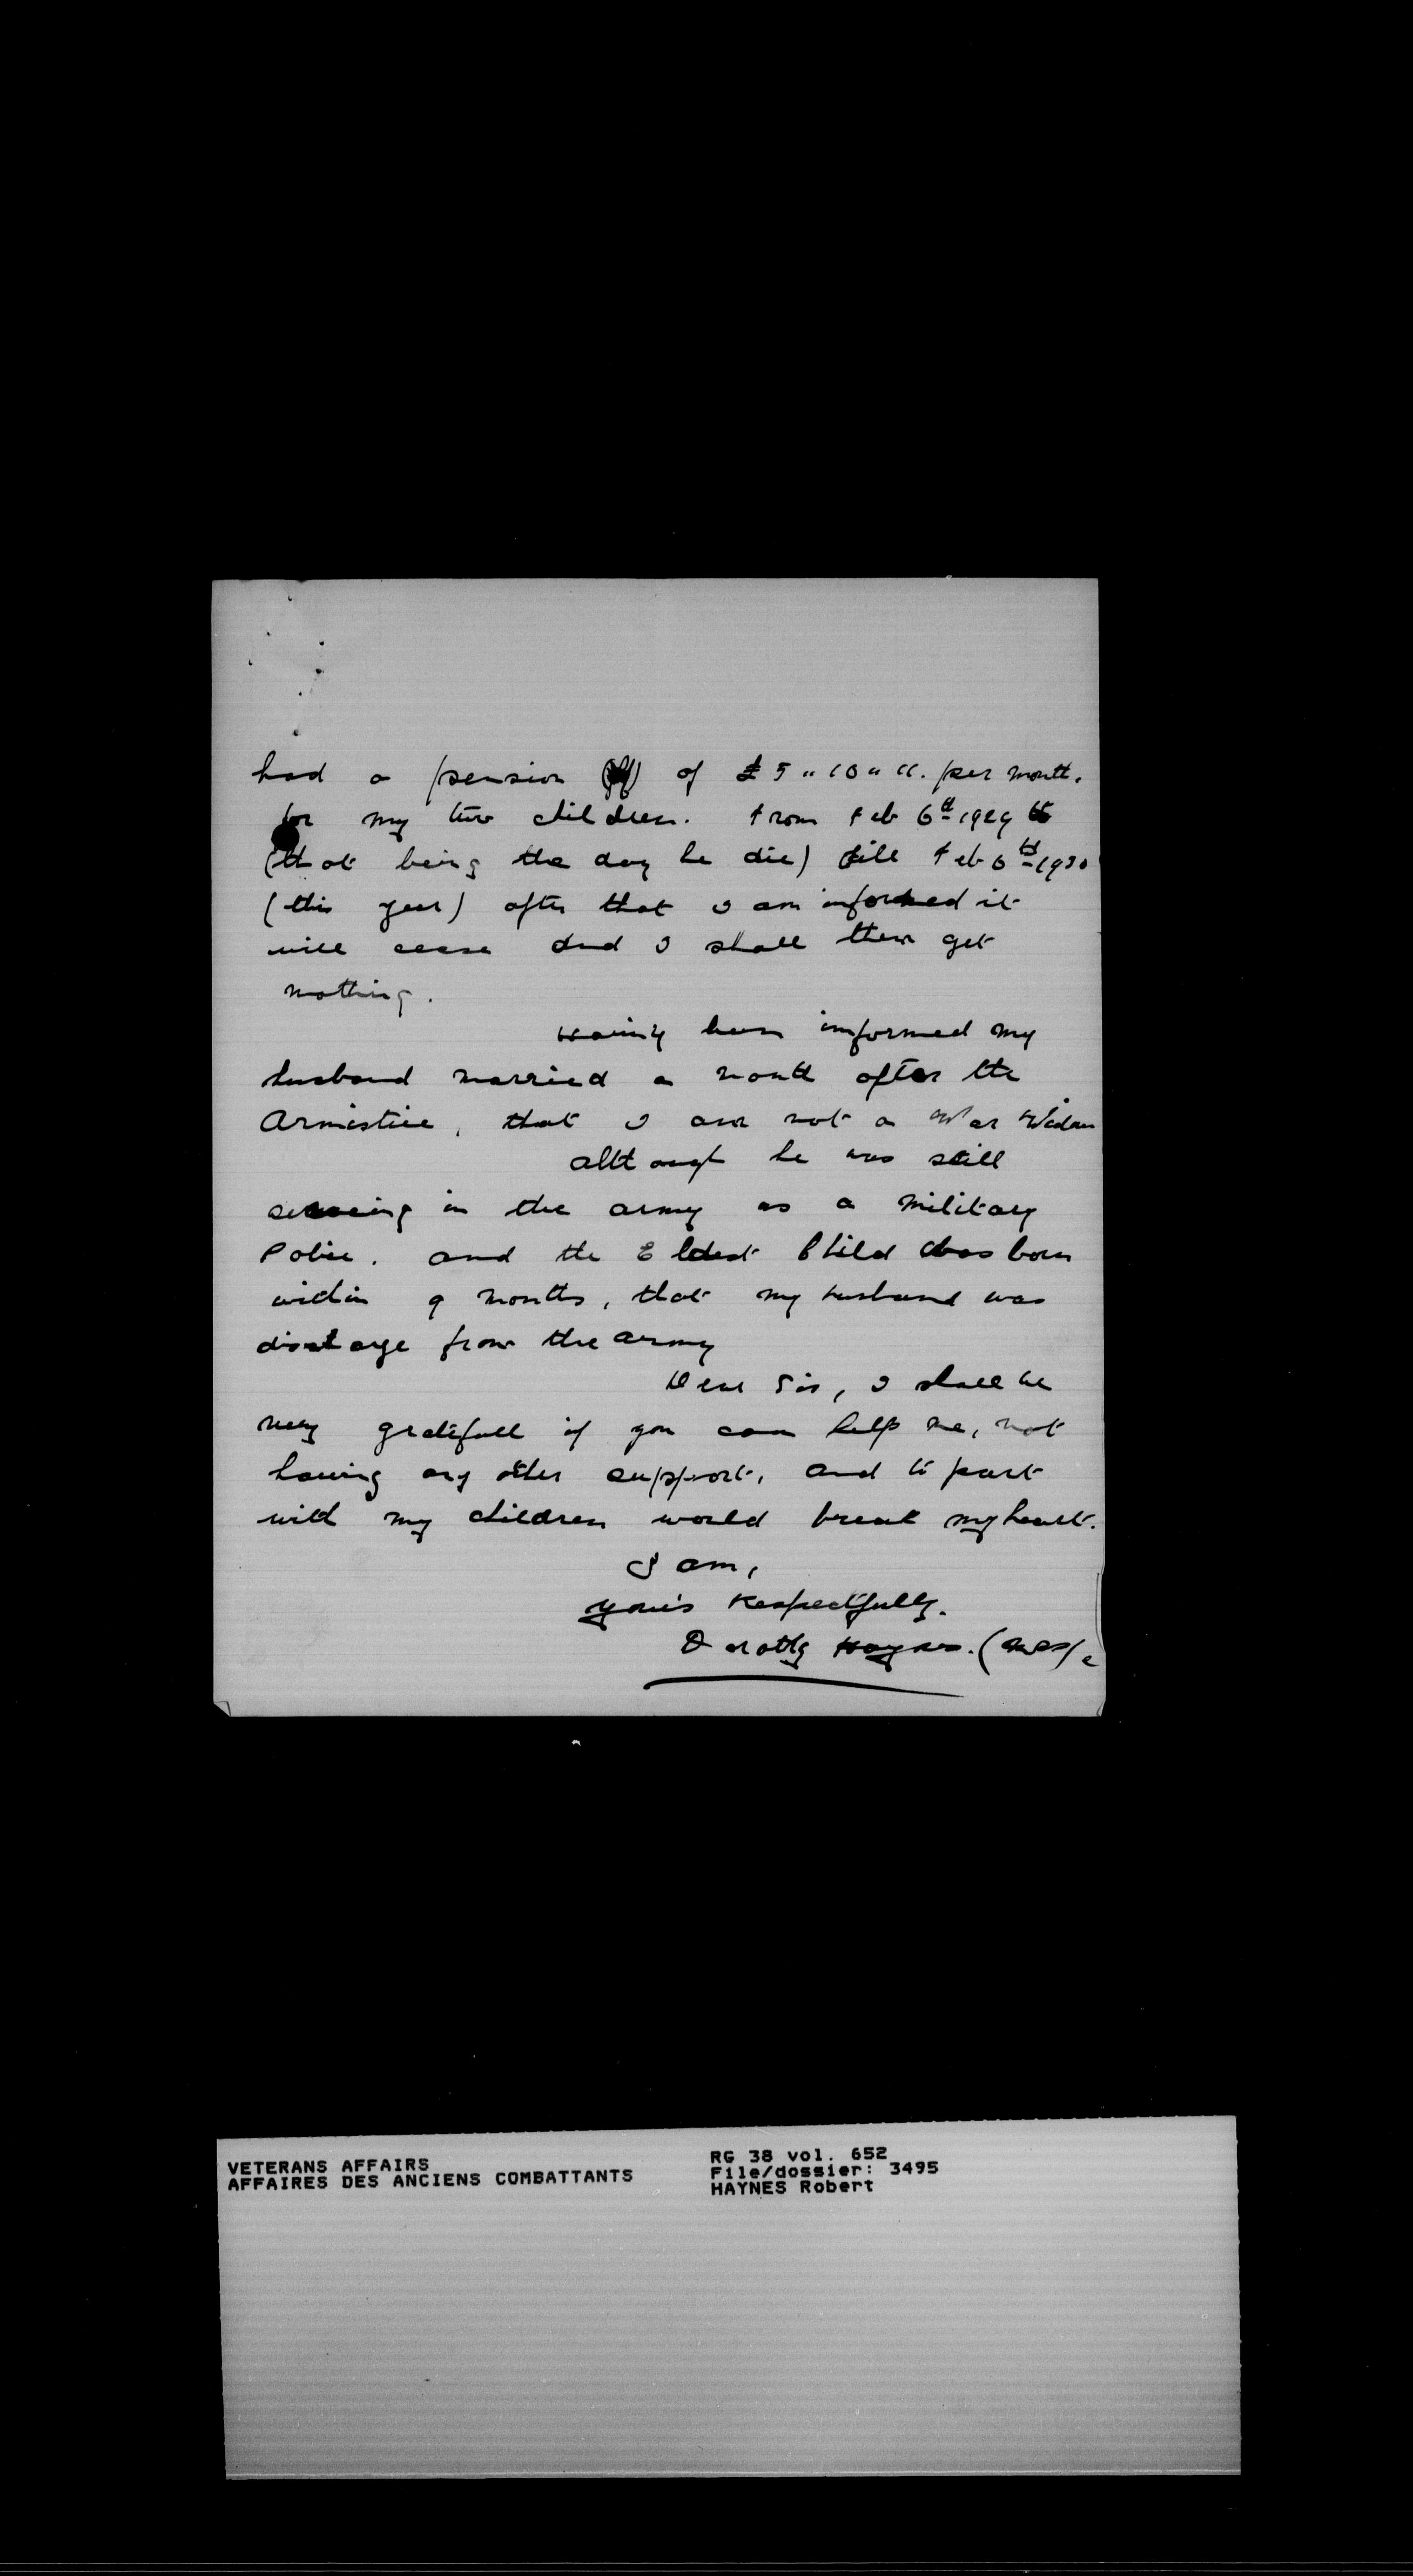 had a pension of £5 " 10 " 11. per month.
for my two children. From Feb 6th 1929
(that being the day he die) till Feb 6th 1930
(this year) after that I am informed it
will cease and I shall then get
nothing.
Having been informed my
husband married a month after the
Armistice, that I am not a War Widow
altough he was still
serving in the army as a Military
Police. and the Eldest Child was born
within 9 months, that my husband was
discharge from the army
Dear Sir, I shall be
very gratefull if you can help me, not
having any other support, and to part
with my children would break my heart.
I am,
yours Respectfully.
Dorothy Haynes. (Mrs)
VETERANS AFFAIRS
AFFAIRES DES ANCIENS COMBATTANTS
RG 38 vol. 652
File/dossier: 3495
HAYNES Robert